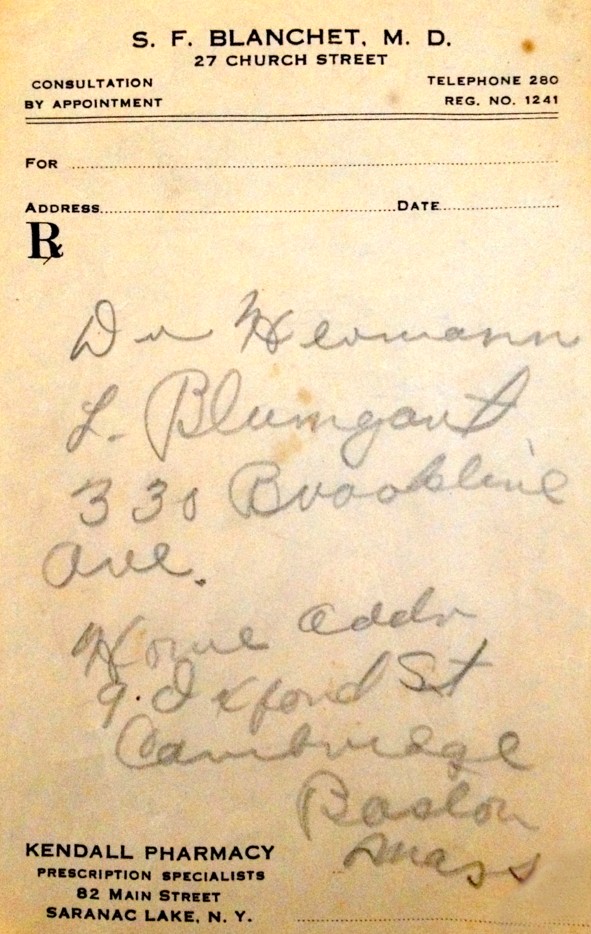 S. F. BLANCHET, M. D.
27 CHURCH STREET
CONSULTATION
BY APPOINTMENT
TELEPHONE 280
REG. NO. 1241
FOR
ADDRESS DATE
℞
Dr Hermann
L. Blumgart
330 Brookline
Ave.
Home Addr
9. Oxford St
Cambridge
Boston
Mass
KENDALL PHARMACY
PRESCRIPTION SPECIALISTS
82 MAIN STREET
SARANAC LAKE, N. Y.